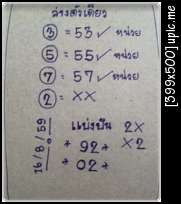 ล่างตัวเดียว
③ = 53 ✓ หน่วย
⑤ = 55 ✓
⑦ = 57 ✓ หน่วย
② = XX
16/8/59
แบ่งปัน 2X
+ 92 + X2
+ 02 +
[399x500] upic.me